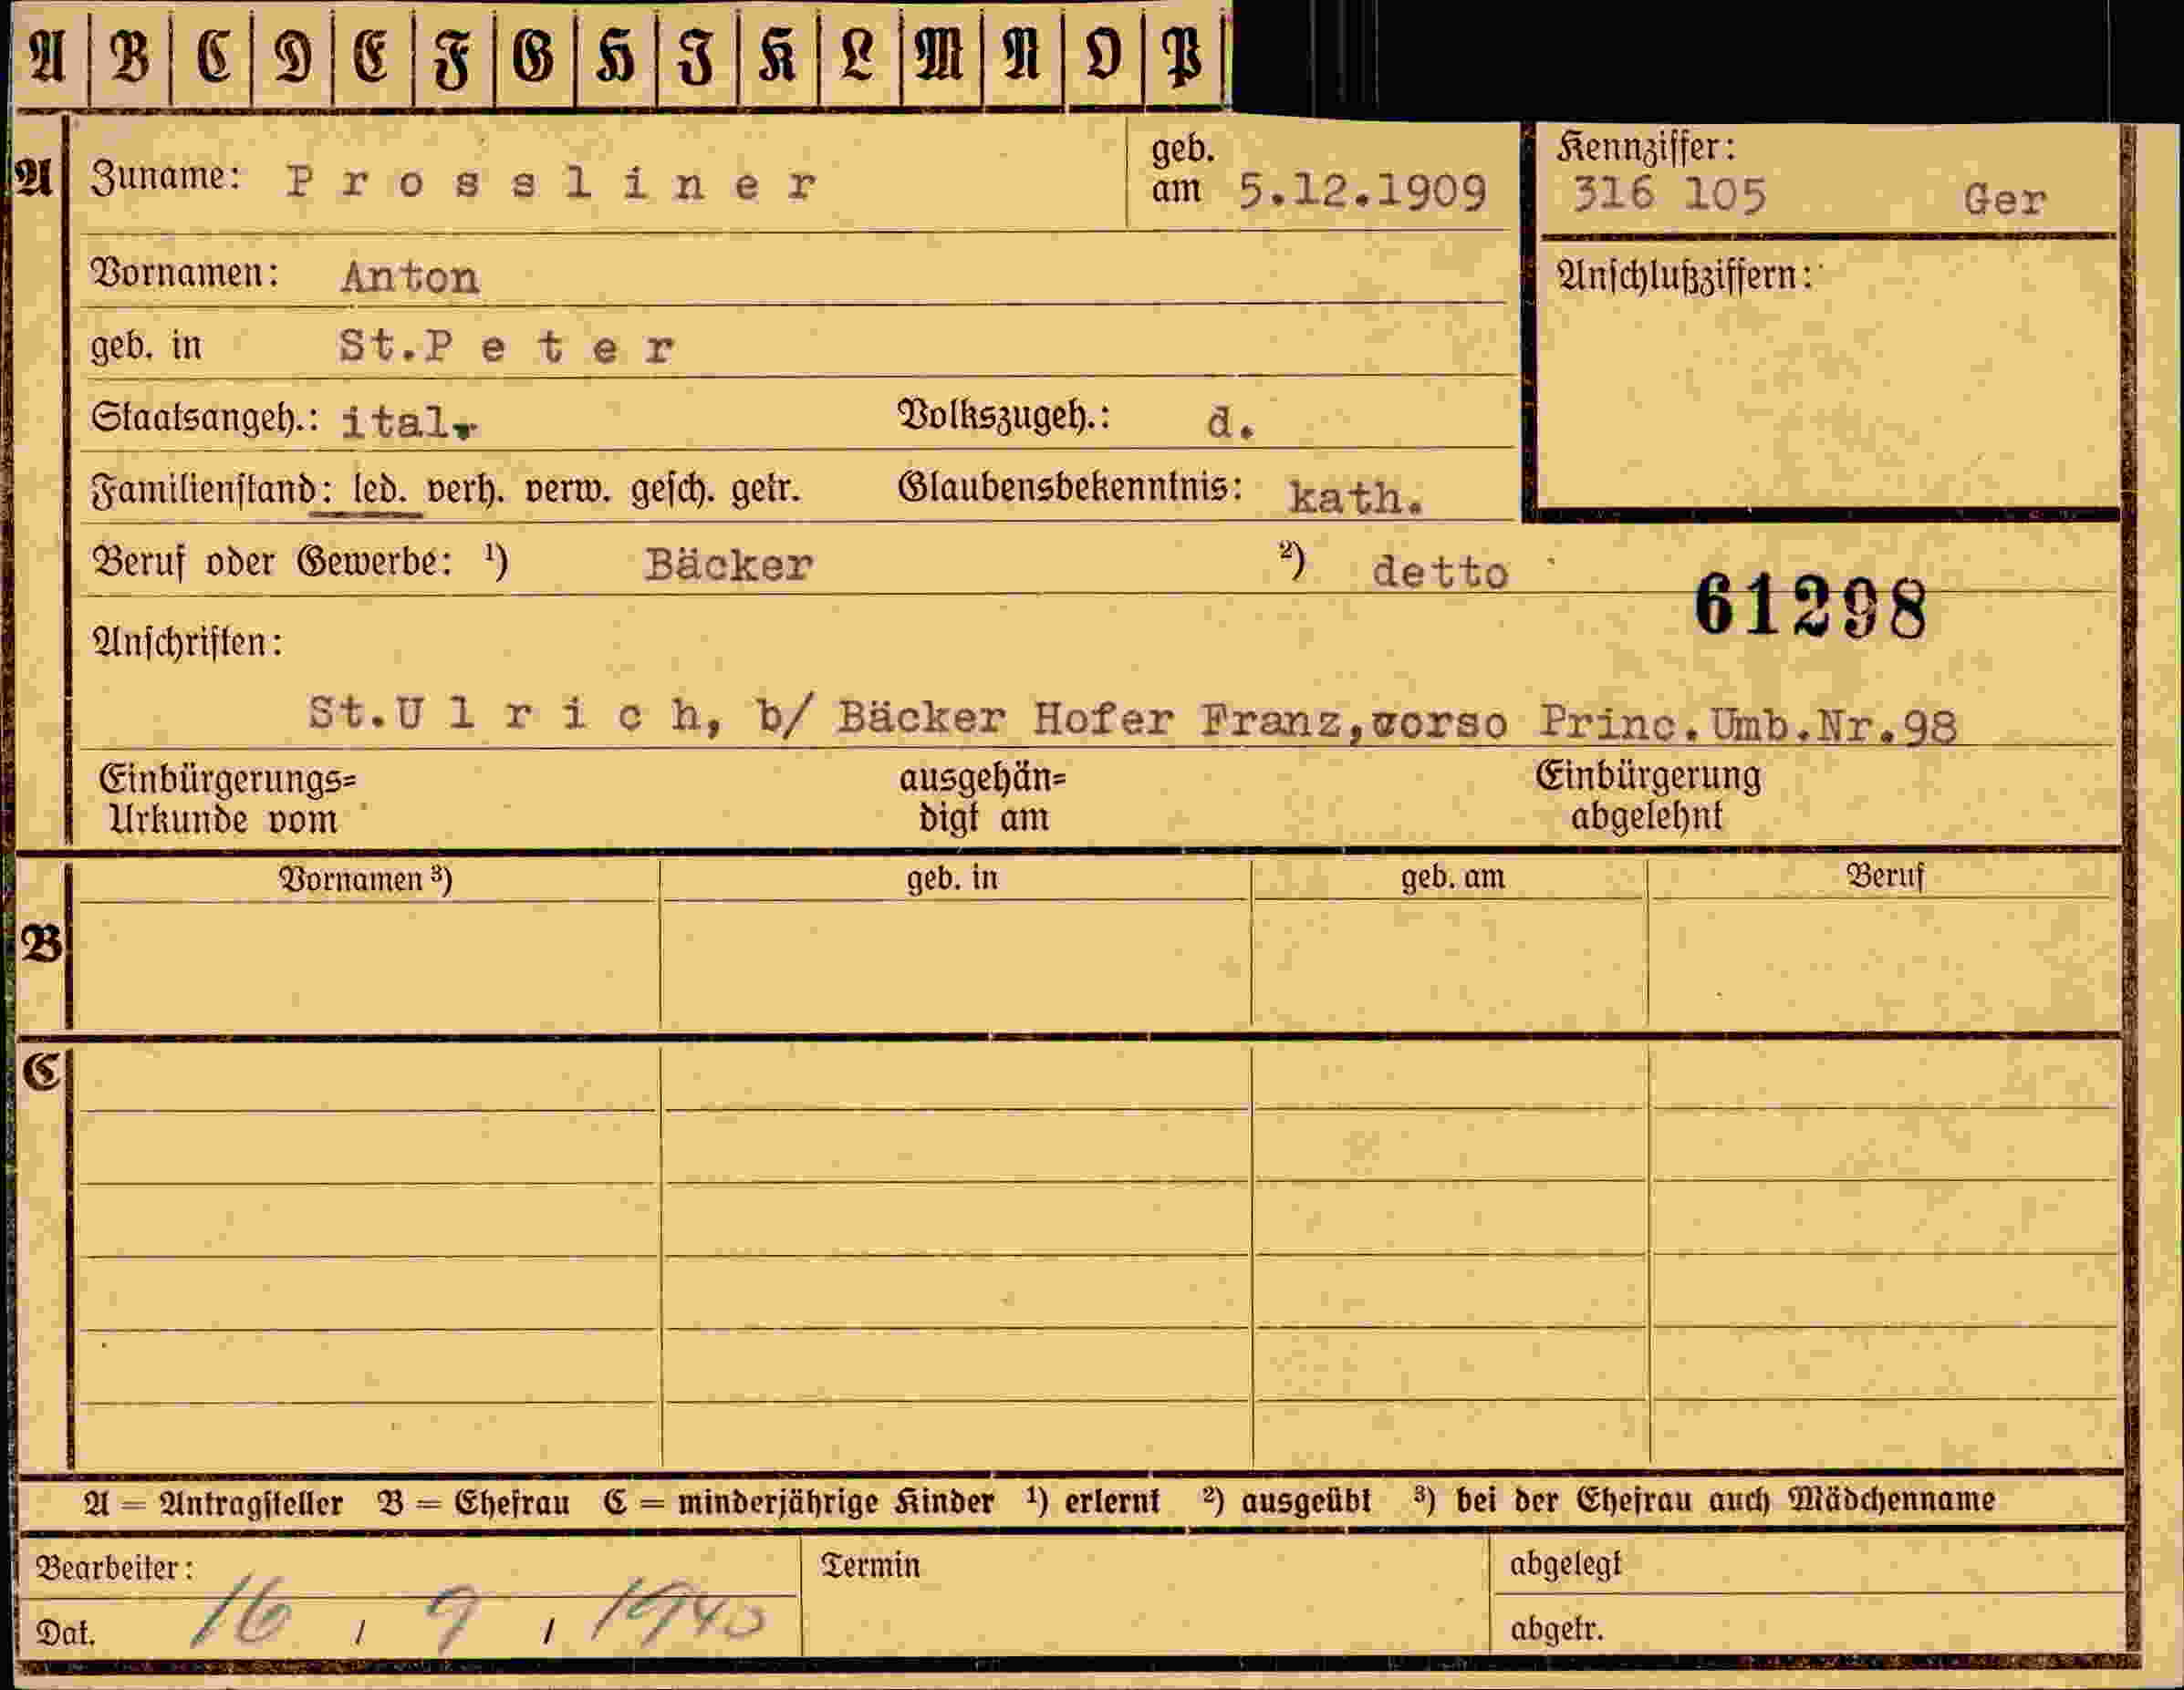 A B C D E F G H I K L M N O P
A Zuname: Prossliner geb. am 5.12.1909 Kennziffer: 316 105 Ger
Vornamen: Anton Anschlußziffern:
geb. in St.Peter
Staatsangeh.: ital. Volkszugeh.: d.
Familienstand: led. verh. verw. gesch. getr. Glaubensbekenntnis: kath.
Beruf oder Gewerbe: ¹) Bäcker ²) detto
61298
Anschriften:
St.Ulrich, b/ Bäcker Hofer Franz, corso Princ.Umb.Nr.98
Einbürgerungs= ausgehän= Einbürgerung
Urkunde vom digt am abgelehnt
Vornamen ³) geb. in geb. am Beruf
B
C
A = Antragsteller B = Ehefrau C = minderjährige Kinder ¹) erlernt ²) ausgeübt ³) bei der Ehefrau auch Mädchenname
Bearbeiter: Termin abgelegt
Dat. 16 / 9 / 1940 abgetr.